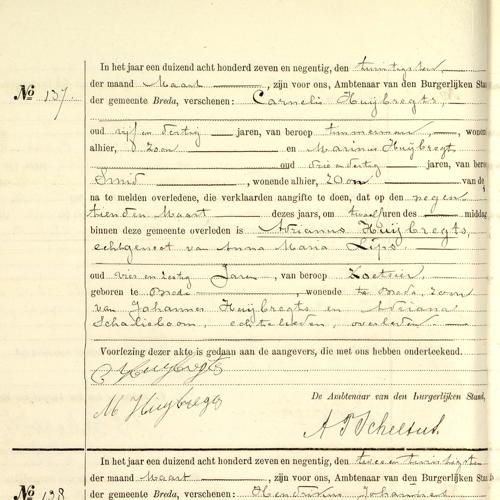 In het jaar een duizend acht honderd zeven en negentig, den twintigsten
No 137. der maand Maart, zijn voor ons, Ambtenaar van den Burgerlijken Stan
der gemeente Breda, verschenen: Cornelis Huijbregts,
oud vijf en dertig jaren, van beroep timmerman, wonen
alhier, Zoon en Marinus Huijbregts
oud drie en dertig jaren, van bero
Smid, wonende alhier, Zoon van de
na te melden overledene, die verklaarden aangifte te doen, dat op den negen
tienden Maart dezes jaars, om twaalf uren des middag
binnen deze gemeente overleden is Adrianus Huijbregts,
echtgenoot van Anna Maria Lips.
oud vier en zestig Jaren, van beroep
geboren te Breda, wonende te Breda, Zoon
van Johannes Huijbregts en Adriana
Schalieboom, echtelieden, overleden.
Voorlezing dezer akte is gedaan aan de aangevers, die met ons hebben onderteekend.
C Huijbregts
De Ambtenaar van den burgerlijken Stand,
M Huijbregts
In het jaar een duizend acht honderd zeven en negentig, den twee en twintigsten
No 138 der maand Maart, zijn voor ons, Ambtenaar van den Burgerlijken Stan
der gemeente Breda, verschenen: Hendrikus Johannes